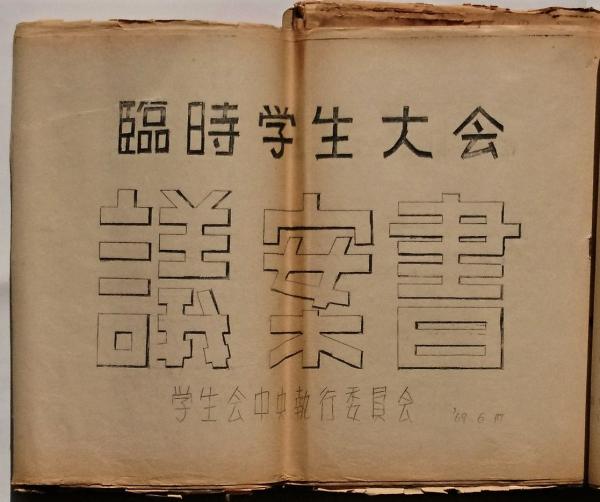 臨時学生大会
議案書
学生会中央執行委員会 '69.6.17